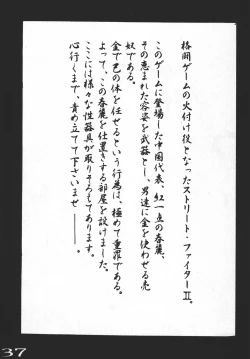 格闘ゲームの火付け役となったストリート・ファイターⅡ。
このゲームに登場した中国代表、紅一点の春麗。
その恵まれた容姿を武器とし、男達に金を使わせる売
奴である。
金で己の体を任せるという行為は、極めて重罪である。
よって、この春麗を仕置きする部屋を設けました。
ここには様々な性器具が取りそろえてあります。
心行くまで、責め立てて下さいませ ―――。
37